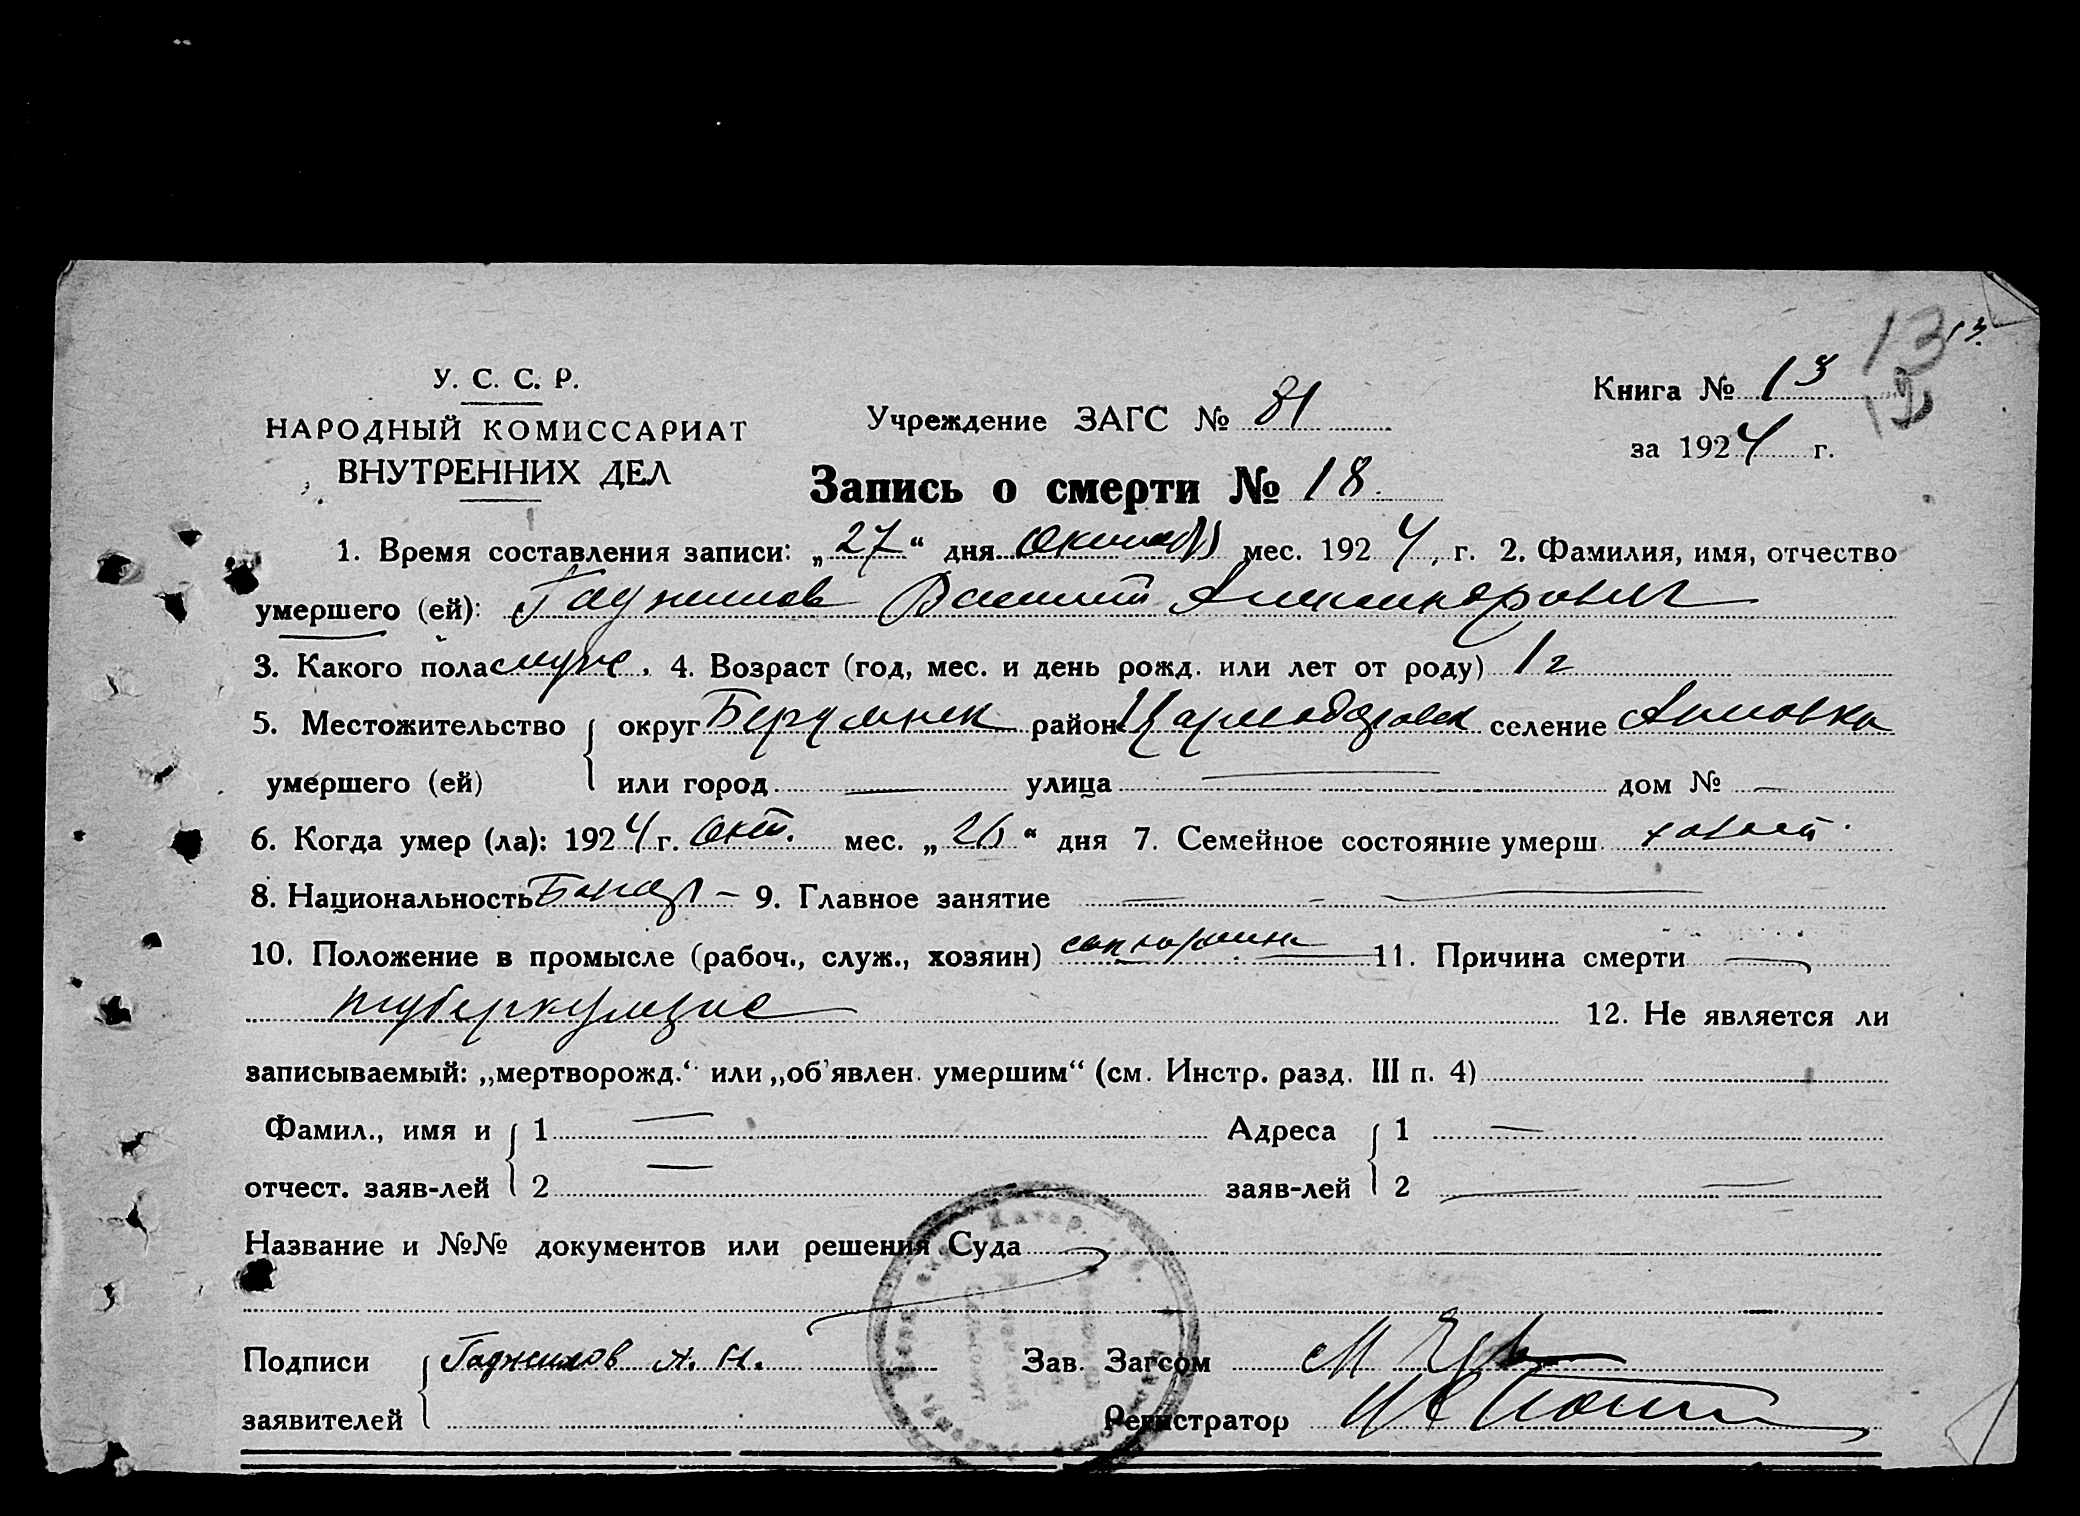 13 13
У. С. С. Р.
НАРОДНЫЙ КОМИССАРИАТ
ВНУТРЕННИХ ДЕЛ
Учреждение ЗАГС № 81
Книга № 13
за 1924 г.
Запись о смерти № 18
1. Время составления записи: „27“ дня октября мес. 1924, г. 2. Фамилия, имя, отчество
умершего (ей): Гаджилов Василий Александрович
3. Какого пола муж. 4. Возраст (год, мес. и день рожд. или лет от роду) 1 г
5. Местожительство округ район селение
умершего (ей) или город — улица — дом № —
6. Когда умер (ла): 1924 г. Окт. мес. „26“ дня 7. Семейное состояние умерш. холост
8. Национальность Болгар – 9. Главное занятие —
10. Положение в промысле (рабоч., служ., хозяин) 11. Причина смерти —
туберкулезис 12. Не является ли
записываемый: „мертворожд.“ или „об'явлен. умершим“ (см. Инстр. разд. III п. 4)
Фамил., имя и 1 — Адреса 1 —
отчест. заяв-лей 2 — заяв-лей 2 — —
Название и №№ документов или решения Суда
Подписи Гаджилов А. Н. Зав. Загсом
заявителей Регистратор